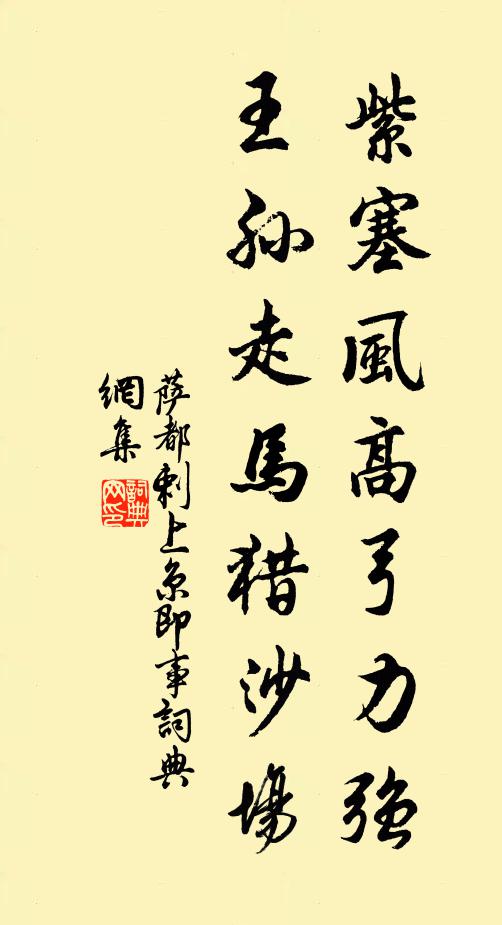 紫塞風高弓力強
王孫走馬猎沙場
薩都剌上京即事詞典
網集
詞典网印